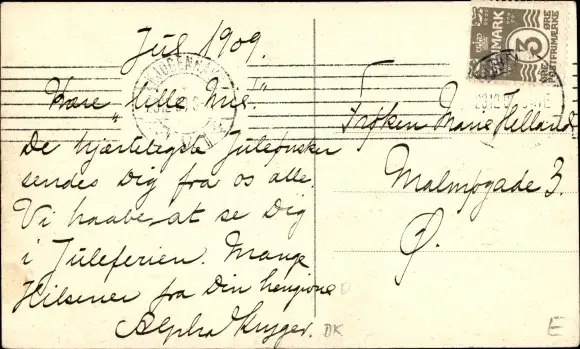 Jul 1909.
Kære "lille Mie."
De hjærteligste Juleønsker
sendes Dig fra os alle.
Vi haabe at se Dig
i Juleferien. Mange
Hilsener fra Din hengivne
Alpha Kryger.
DK
KJØBENHAVN
DANMARK
3
ØRE
POSTFRIMÆRKE
Frøken Marie Helland
Malmøgade 3.
Ø.
E